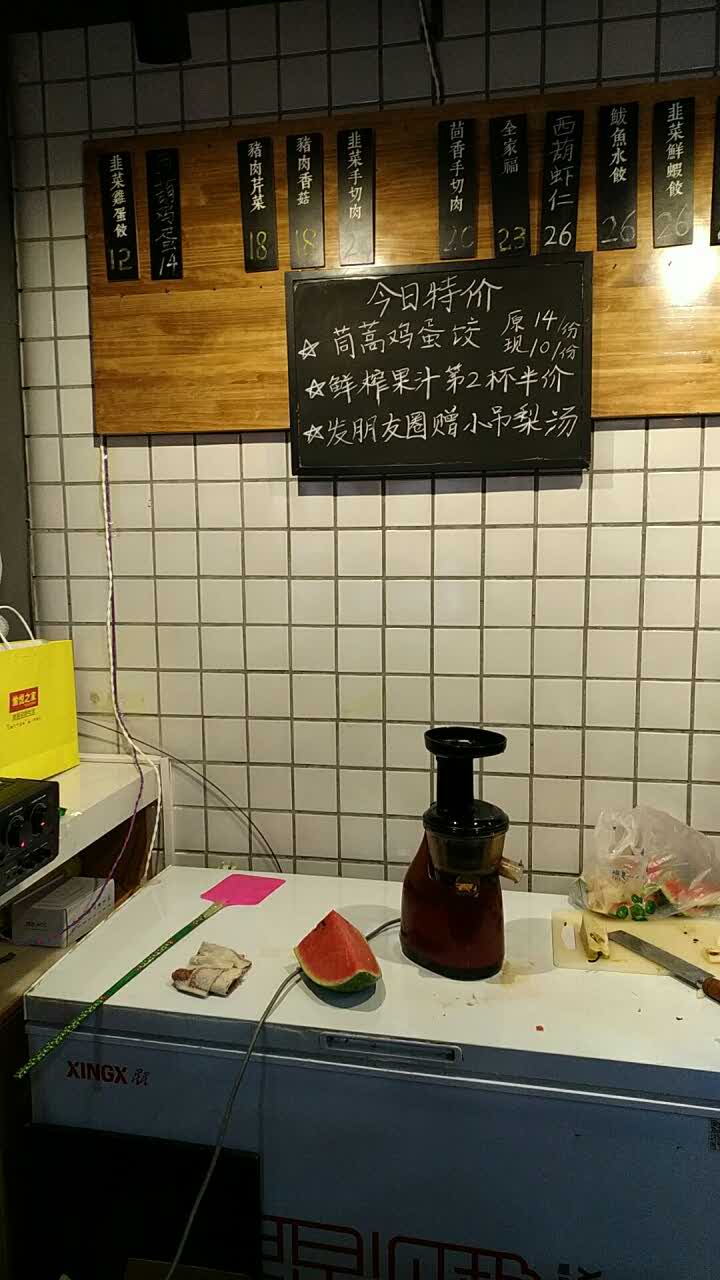 韭菜雞蛋餃 12
14
豬肉芹菜 18
豬肉香菇 18
韭菜手切肉
茴香手切肉
全家福 23
西葫虾仁 26
鲅魚水餃 26
韭菜鮮蝦餃 26
今日特价
☆茼蒿鸡蛋饺 原14/份
现10/份
☆鲜榨果汁第2杯半价
☆发朋友圈赠小吊梨汤
XINGX